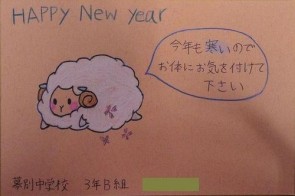 HAPPY New year
今年も寒いので
お体にお気を付けて
下さい
幕別中学校 3年B組